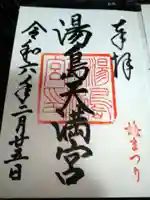 奉拝
湯島天満宮
令和六年二月廿五日
梅まつり